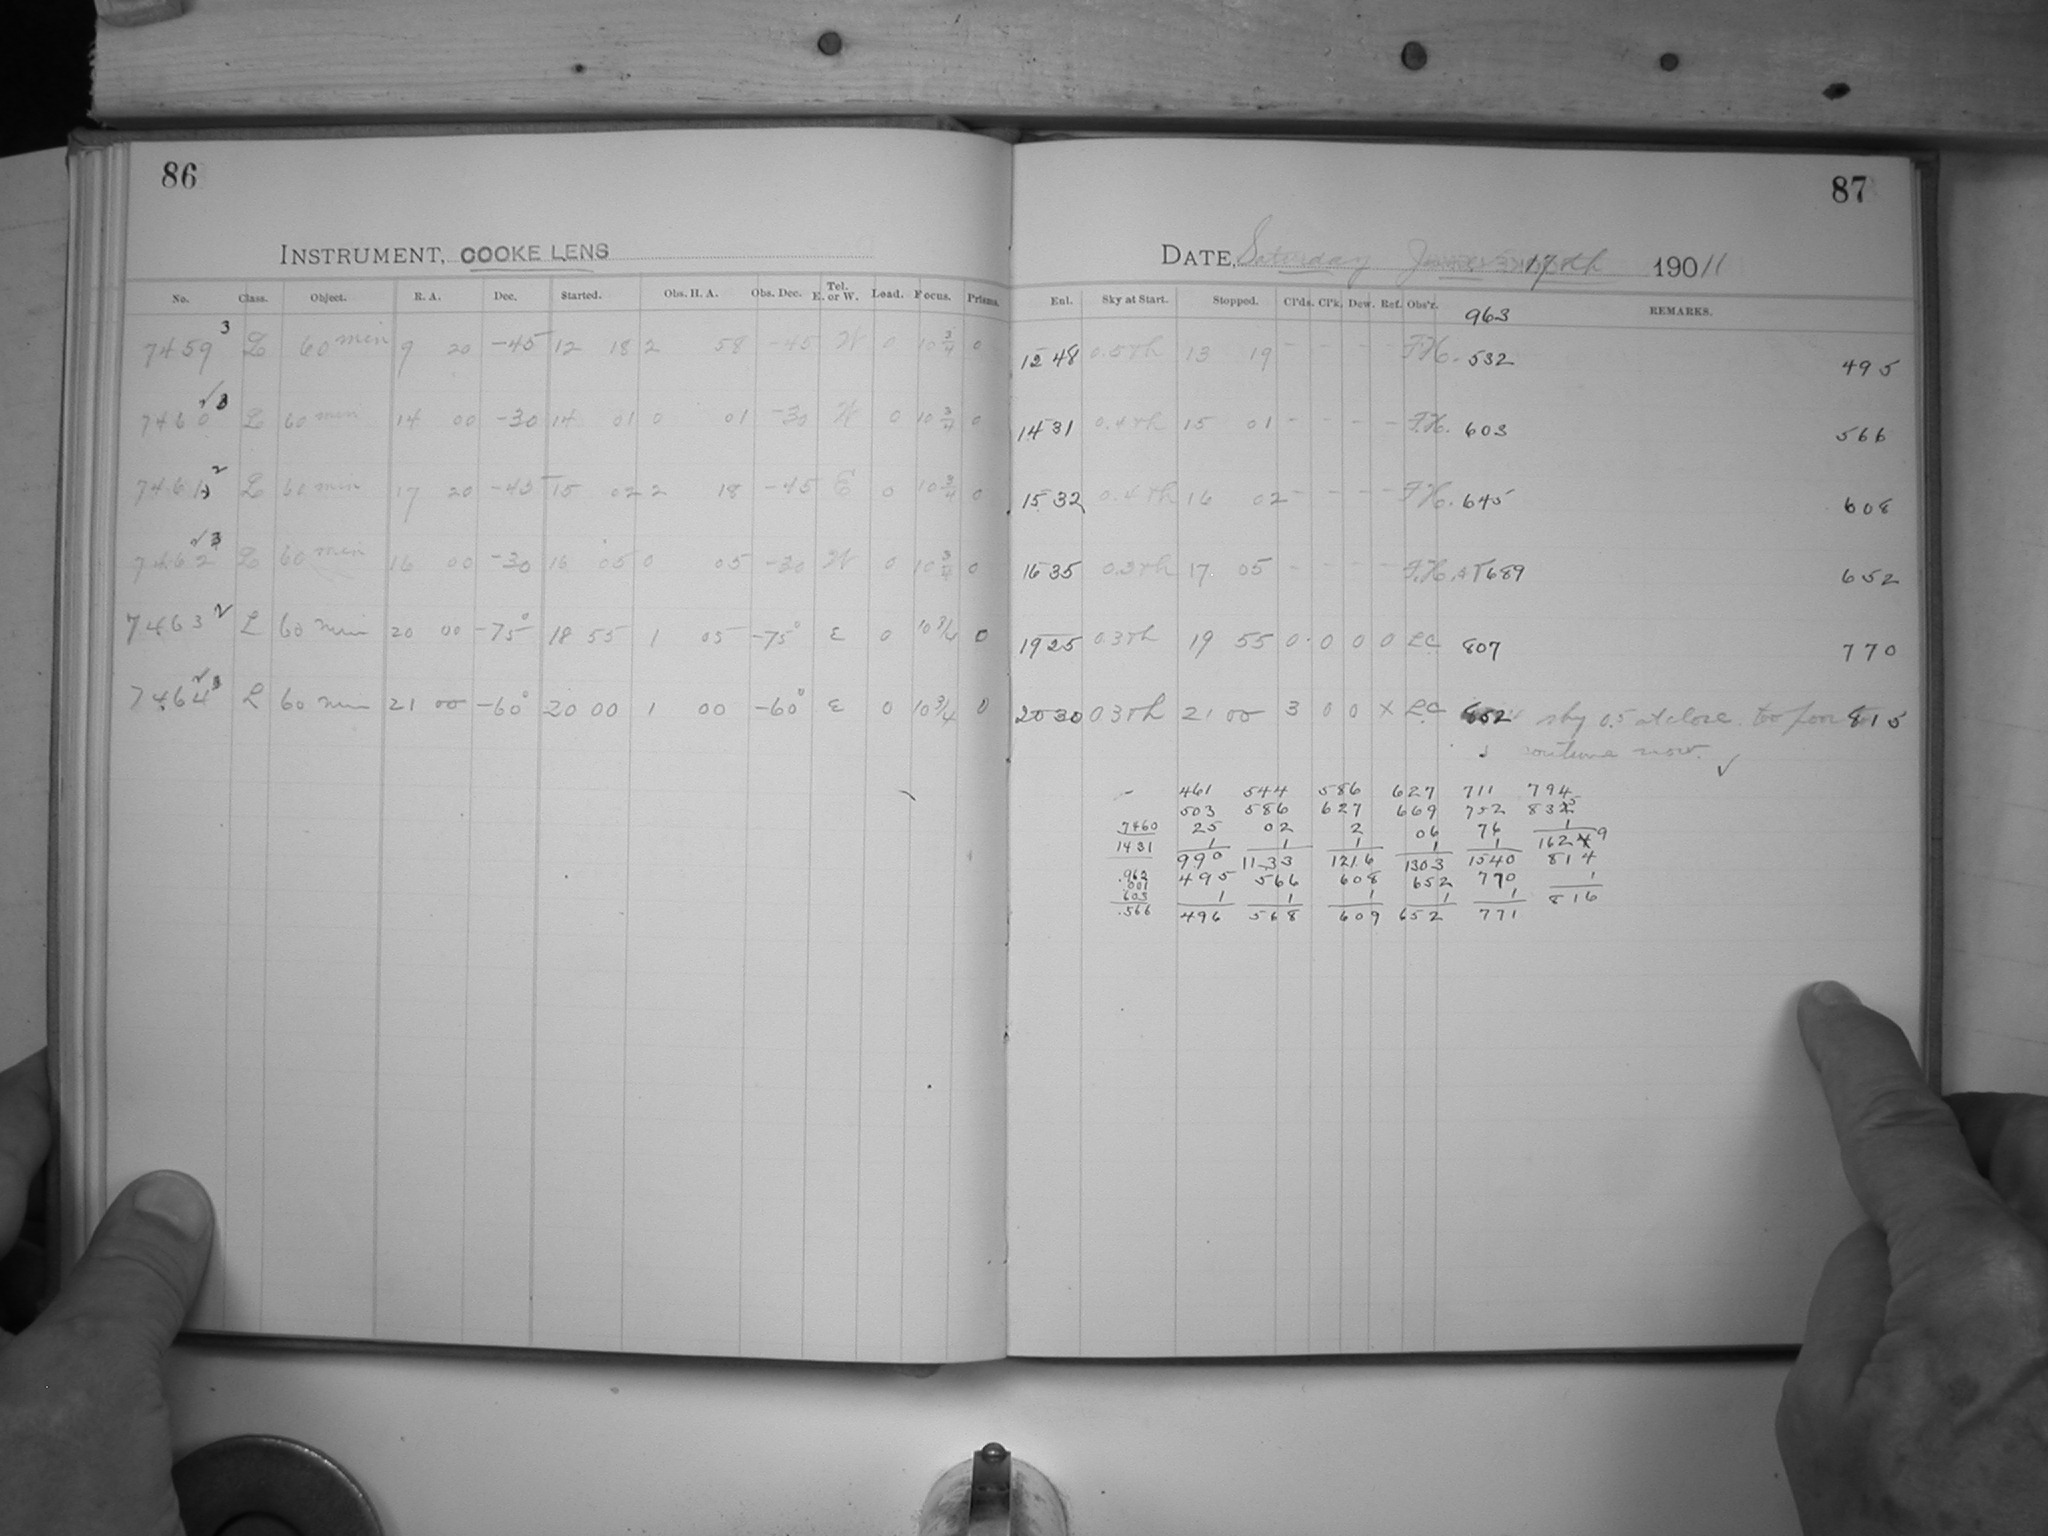 86
INSTRUMENT, COOKE LENS
No. Class. Object. R. A. Dec. Started. Obs. H. A. Obs. Dec. Tel. E. or W. Load. Focus. Prisms.
7459 3 L 60 min 9 20 -45 12 18 2 58 -45 W 0 10 3/4 0
7460 √3 L 60 min 14 00 -30 14 01 0 01 -30 W 0 10 3/4 0
7461 2 L 60 min 17 20 -45 15 02 2 18 -45 E 0 10 3/4 0
7462 √3 L 60 min 16 00 -30 16 05 0 05 -30 W 0 10 3/4 0
7463 2 L 60 min 20 00 -75° 18 55 1 05 -75° E 0 10 3/4 0
7464 L 60 min 21 00 -60° 20 00 1 00 -60° E 0 10 3/4 0
87
DATE, Saturday 17th 19011
Enl. Sky at Start. Stopped. Cl'ds. Cl'k. Dew. Ref. Obs'r. REMARKS.
963
12 48 0.5th 13 19 - - - - F.H. 532 495
14 31 0.4th 15 01 - - - - F.H. 603 566
15 32 0.4th 16 02 - - - - F.H. 645 608
16 35 0.3th 17 05 - - - - F.H. 689 652
19 25 0.3th 19 55 0 0 0 0 LC 807 770
20 30 0.3th 21 00 3 0 0 X LC 852 sky 0.5 at close. too poor to 815
continue now. √
461 544 586 627 711 794
503 586 627 669 752
7460 25 02 2 06 76 1
1431 1 1 1 1 1
990 1133 1216 1303 1540 814
.962 495 566 608 652 770 1
001
603 1 1 1 1 1 816
.566 496 568 609 652 771